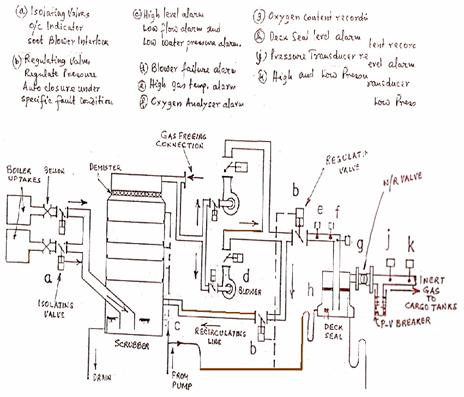 (a) Isolating Valves
O/C Indicator
Soot Blower Interlock
(b) Regulating Valve
Regulate Pressure
Auto closure under
specific fault condition
(c) High level alarm
Low flow alarm and
Low water pressure alarm.
(d) Blower failure alarm
(e) High gas temp. alarm
(f) Oxygen Analyser alarm
(g) Oxygen Content recordi
(h) Deck Seal level alarm
tent record
(j) Pressure Transducer re
vel alarm
(k) High and Low Pressu
ransducer
Low Press
GAS FREEING
CONNECTION
REGULATI
VALVE
N/R VALVE
BOILER
UPTAKES
BELLOW
DEMISTER
b
e
f
g
j
k
a
ISOLATING
VALVE
d
BLOWER
h
INERT
GAS
TO
CARGO TANKS
c
RECIRCULATING
LINE
b
DECK
SEAL
P-V BREAKER
SCRUBBER
DRAIN
FROM
PUMP